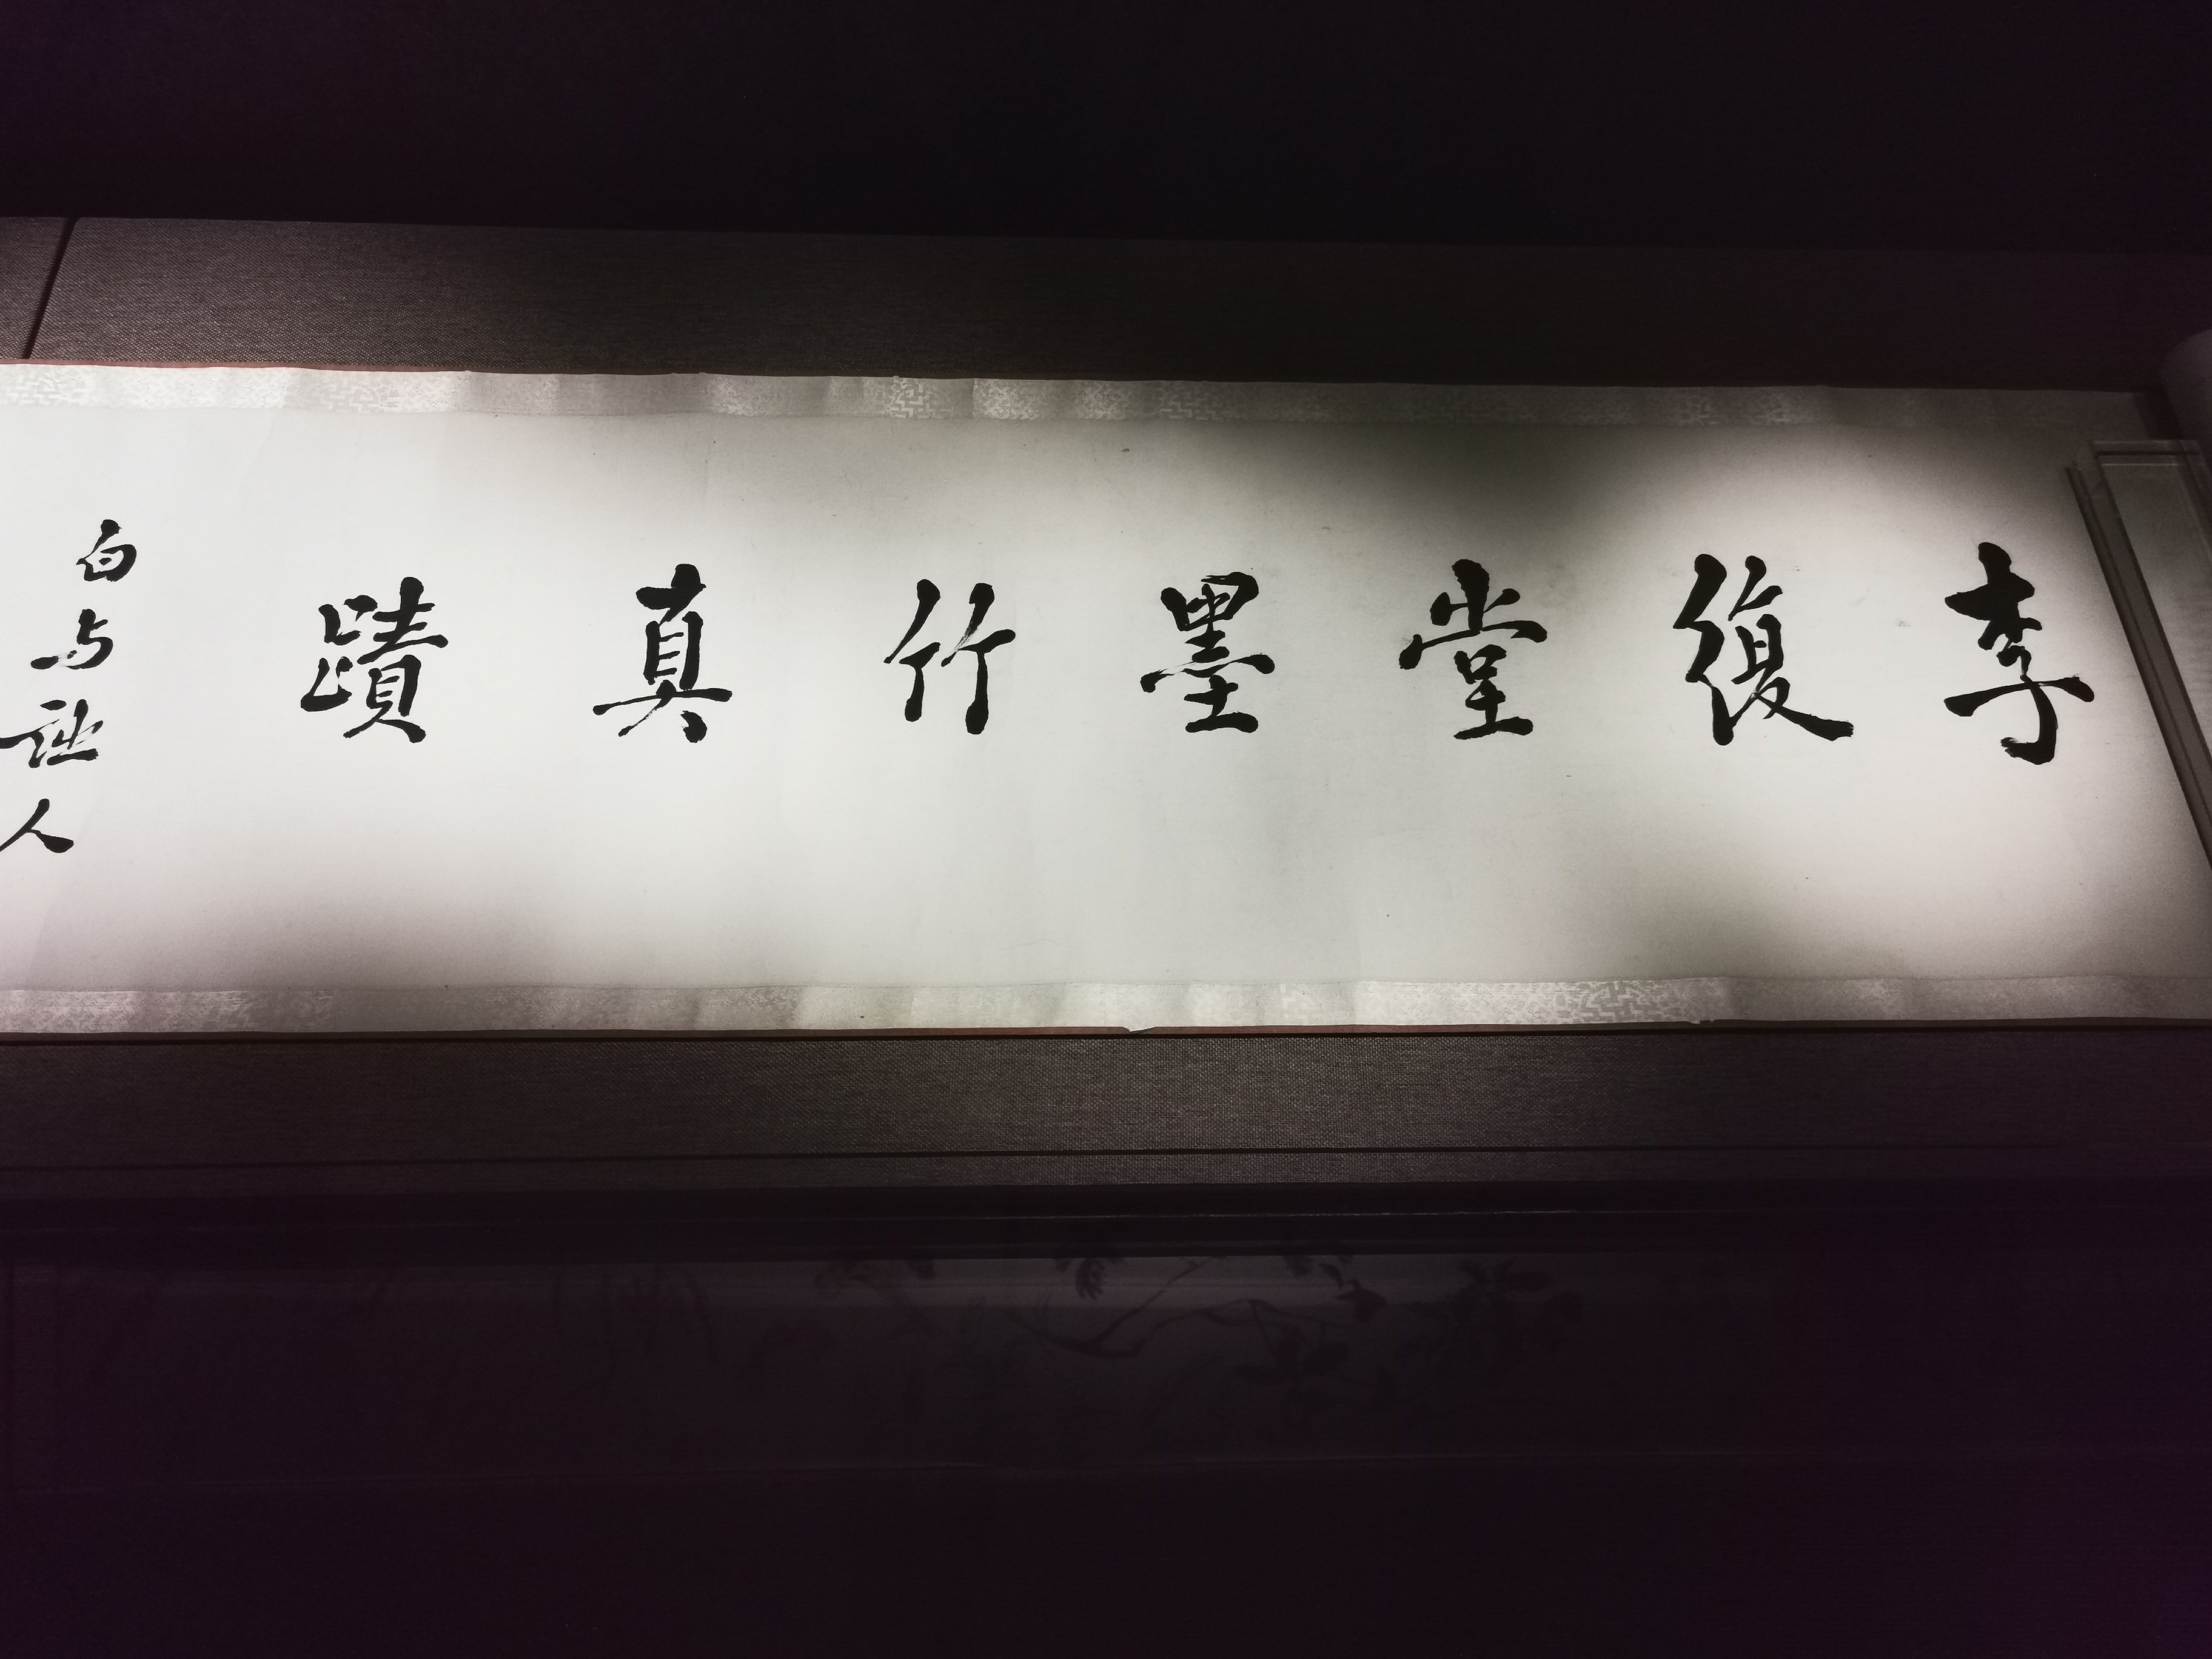 李復堂墨竹真蹟
白与詘人